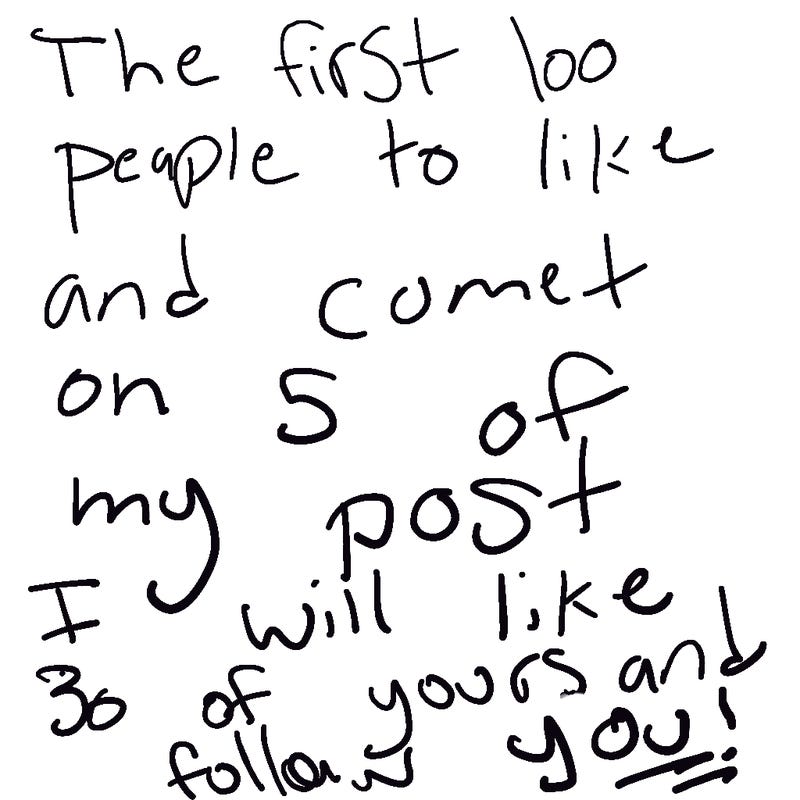 The first 100
peaple to like
and comet
on 5 of
my post
I will like
30 of yours and
follow you!